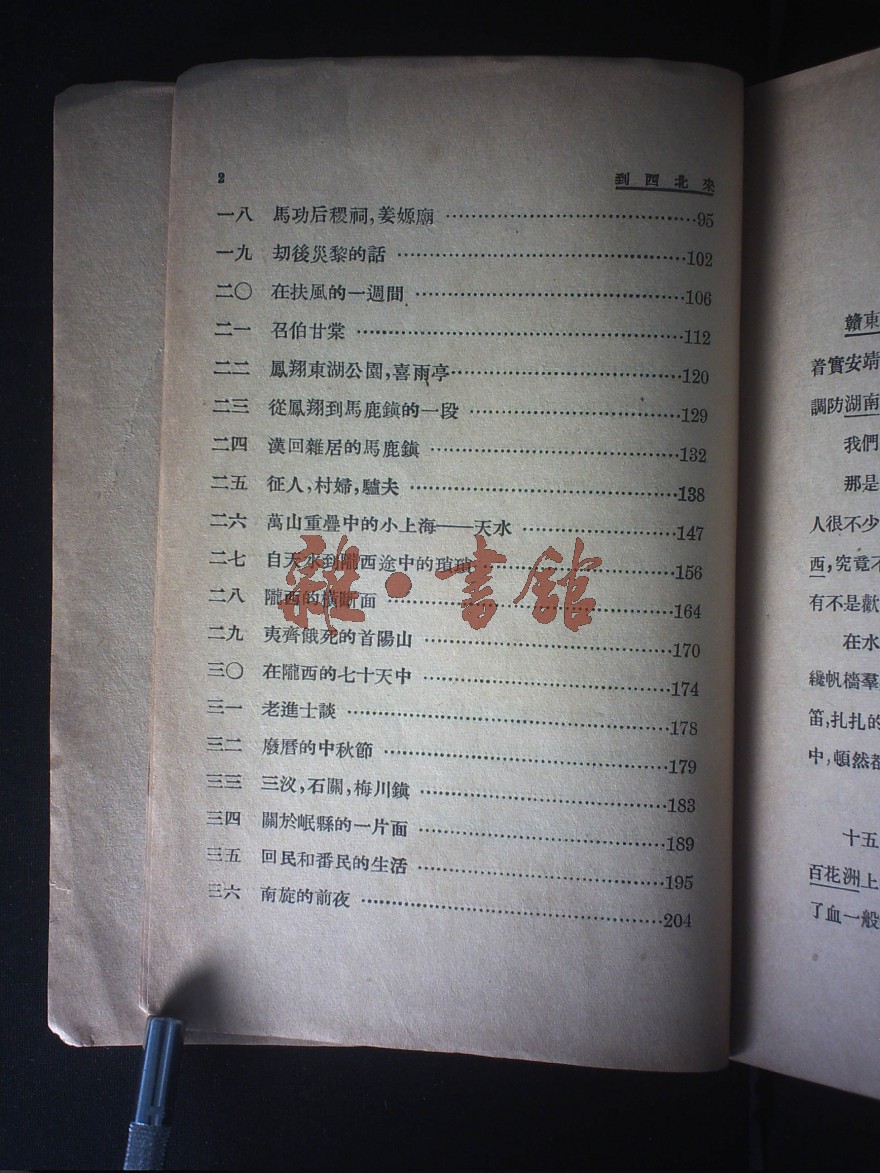 2
到西北來
一八 馬功后稷祠,姜嫄廟 95
一九 刧後災黎的話 102
二〇 在扶風的一週間 106
二一 召伯甘棠 112
二二 鳳翔東湖公園,喜雨亭 120
二三 從鳳翔到馬鹿鎭的一段 129
二四 漢回雜居的馬鹿鎭 132
二五 征人,村婦,驢夫 138
二六 萬山重疊中的小上海——天水 147
二七 自天水到隴西途中的瑣瑣 156
二八 隴西的橫斷面 164
二九 夷齊餓死的首陽山 170
三〇 在隴西的七十天中 174
三一 老進士談 178
三二 廢曆的中秋節 179
三三 三汊,石關,梅川鎭 183
三四 關於岷縣的一片面 189
三五 回民和番民的生活 195
三六 南旋的前夜 204
雜·書館
贛東
着實安靖
調防湖南
我們
那是
人很不少
西,究竟不
有不是歡
在水
纔帆檣羣
笛,扎扎的
中,頓然都
十五
百花洲上
了血一般